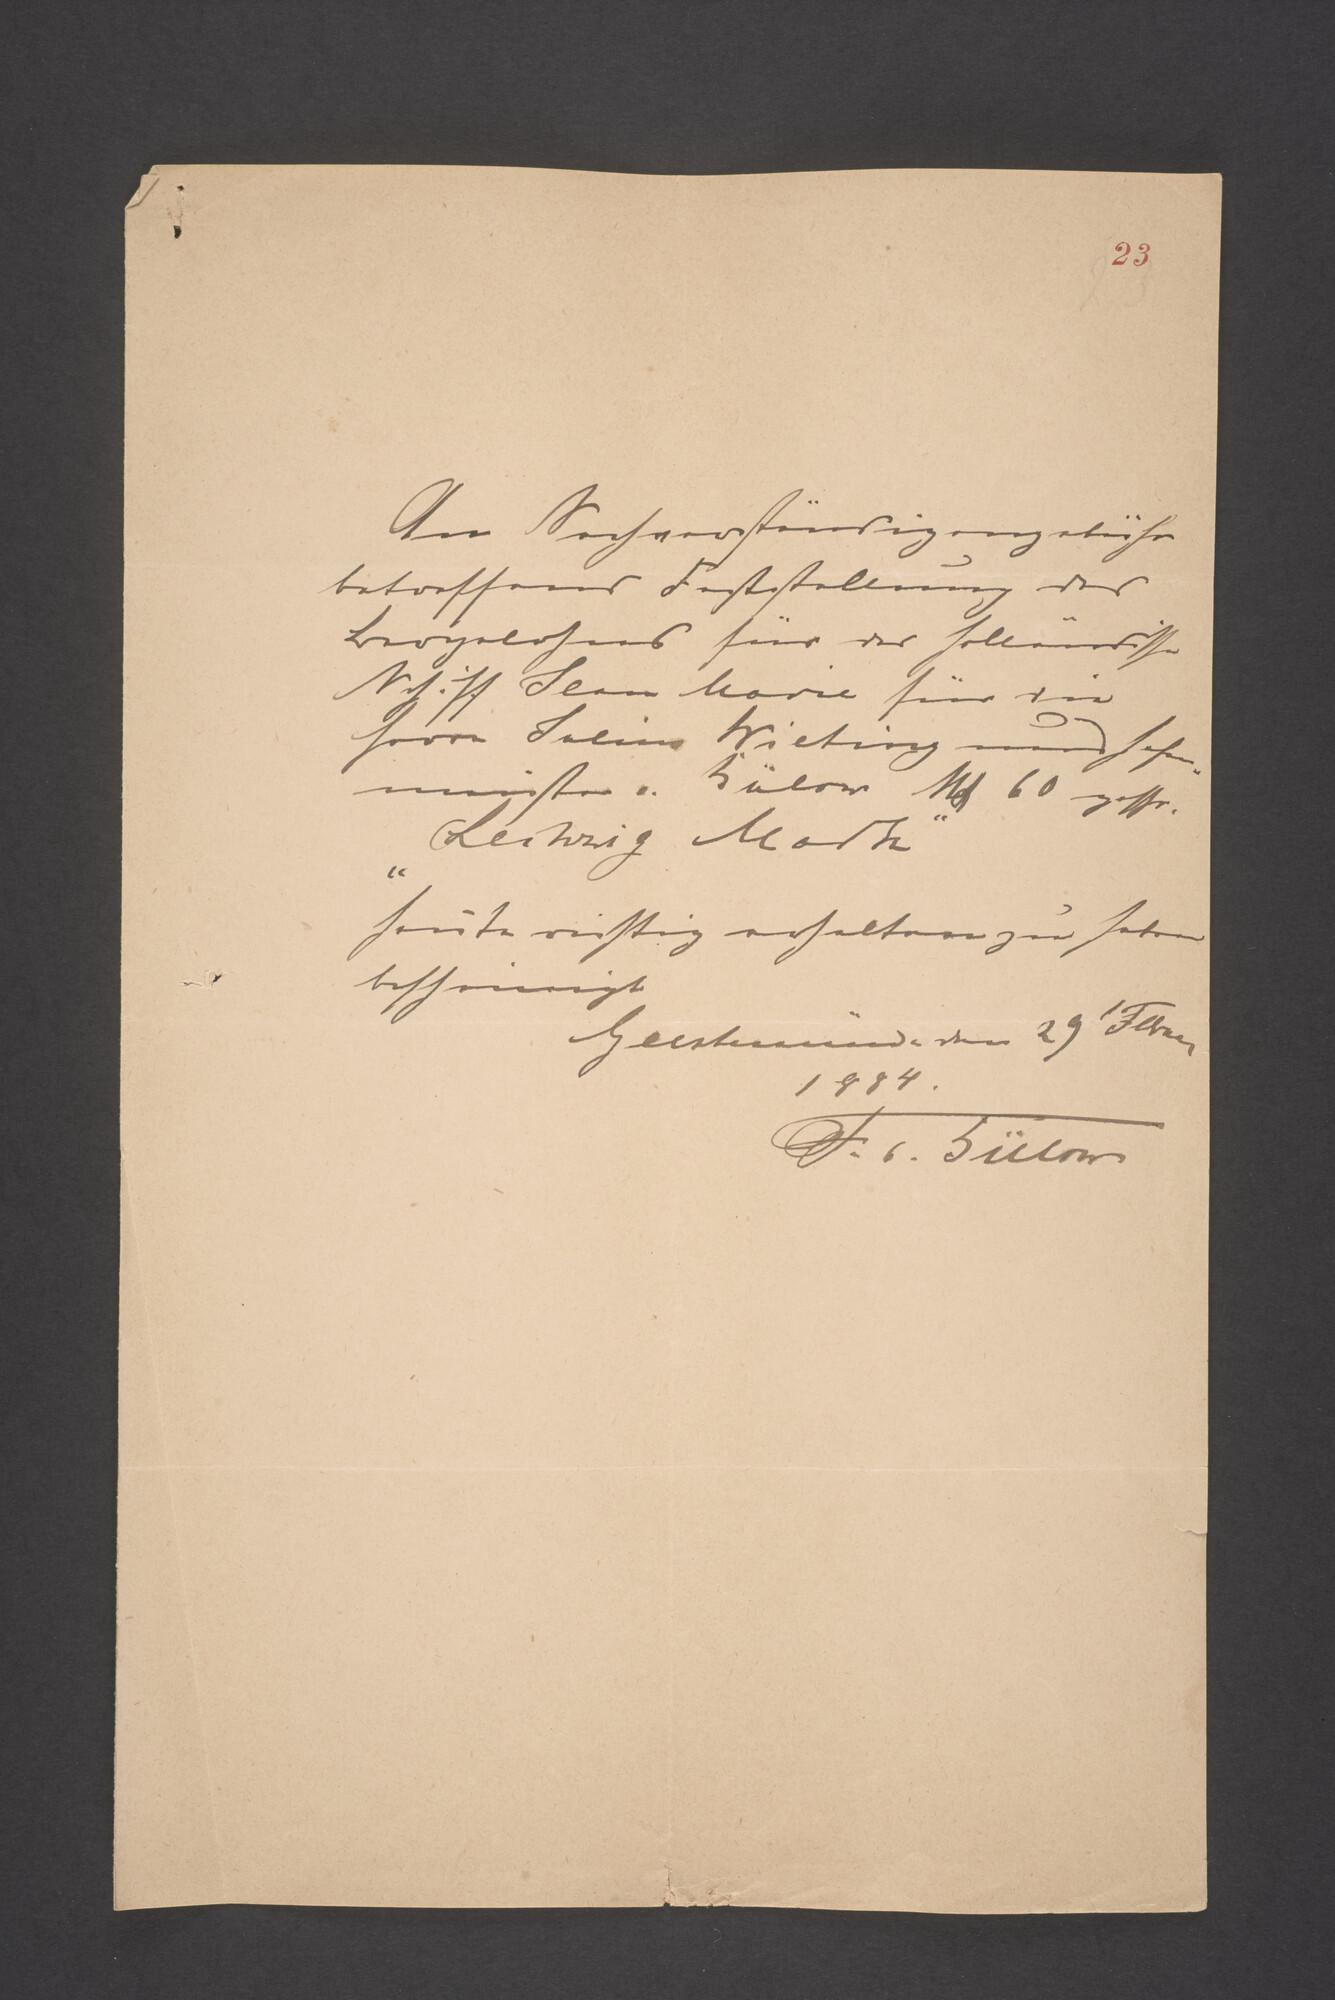 23
An Sachverständigengebühr
betreffend Feststellung des
Bergelohns für das holländische
Schiff Jean Marie für die
Herrn Julius Wieting und Hafen-
meister v. Bülow M 60 
„Sechzig Mark“
heute richtig erhalten zu haben
bescheinigt
Geestemünde den 29 Febr
1884.
F. v. Bülow